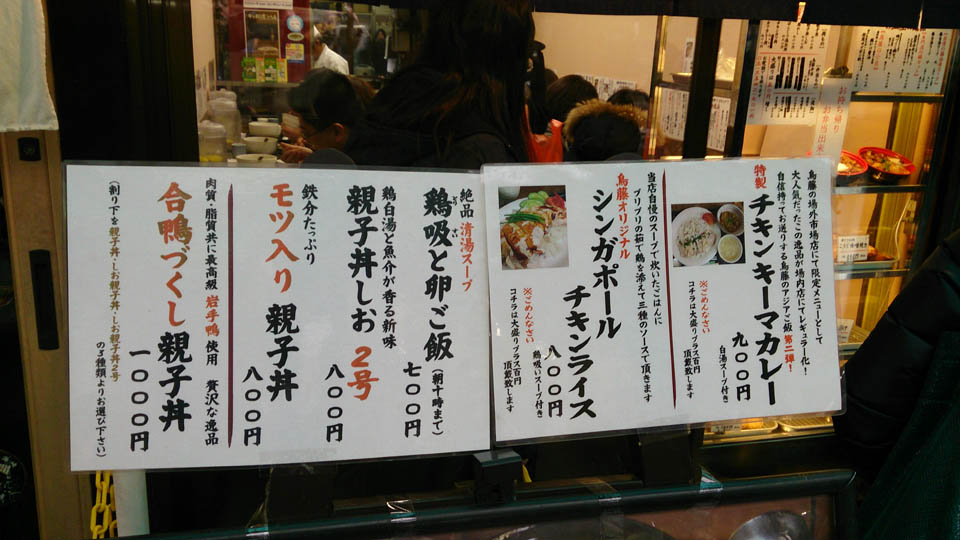 鳥藤の場外市場店にて限定メニューとして
大人気だったこの逸品が場内店にてレギュラー化!
自信持ってお送りする鳥藤のアジアご飯 第二弾!
特製
チキンキーマカレー
九〇〇円
白湯スープ付き
※ごめんなさい
コチラは大盛りプラス百円
頂戴致します
当店自慢のスープで炊いたごはんに
プリプリの茹で鶏を添えて三種のソースで頂きます
鳥藤オリジナル
シンガポール
チキンライス
八〇〇円
鶏吸いスープ付き
※ごめんなさい
コチラは大盛りプラス百円
頂戴致します
絶品 清湯スープ
鶏吸と卵ご飯
(朝十時まで)
七〇〇円
鶏白湯と魚介が香る新味
親子丼しお 2号
八〇〇円
鉄分たっぷり
モツ入り 親子丼
八〇〇円
肉質・脂質共に最高級 岩手鴨 使用 贅沢な逸品
合鴨づくし 親子丼
一〇〇〇円
(割り下を親子丼・しお親子丼・しお親子丼2号
の3種類よりお選び下さい)
お持ち帰り
お弁当出来